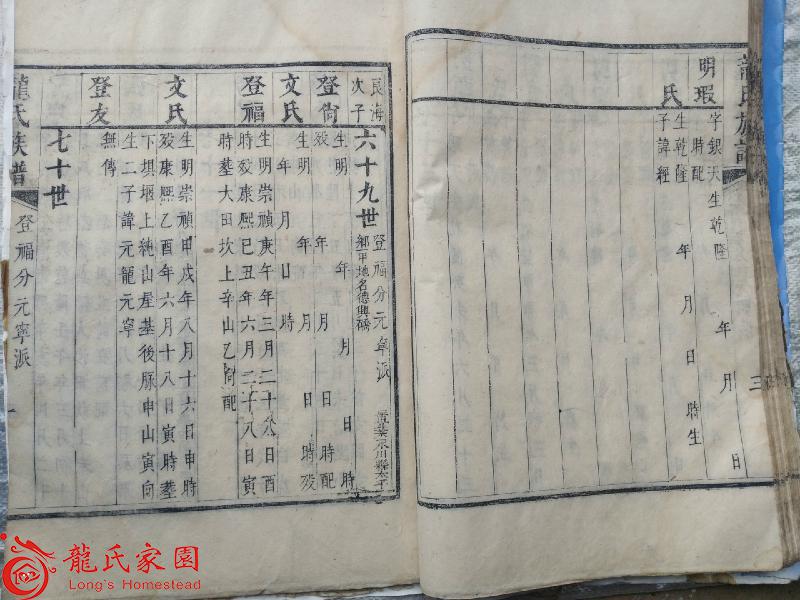 龍氏族譜
三
明瑕
字銀天生乾隆 年 月 日
時配
氏
生乾隆 年 月 日 時生
子諱經
六十九世 登福分元寧派
鄉甲地名德興橋
良海
次子
登尙
生明 年 月 日 時
歿 年 月 日 時配
文氏
生明 年 月 日 時歿
年 月 日 時
登福
生明崇禎庚午年三月二十八日酉
時歿康熙己丑年六月二十八日寅
時塟大田坎上辛山乙向配
文氏
生明崇禎甲戌年八月十六日申時
歿康熙乙酉年六月十八日寅時塟
下壩堰上純山屋基後脲申山寅向
生二子諱元龍元寧
登友
無傳
七十世
龍氏族譜
登福分元寧派
一
龍氏家園
Long's Homestead